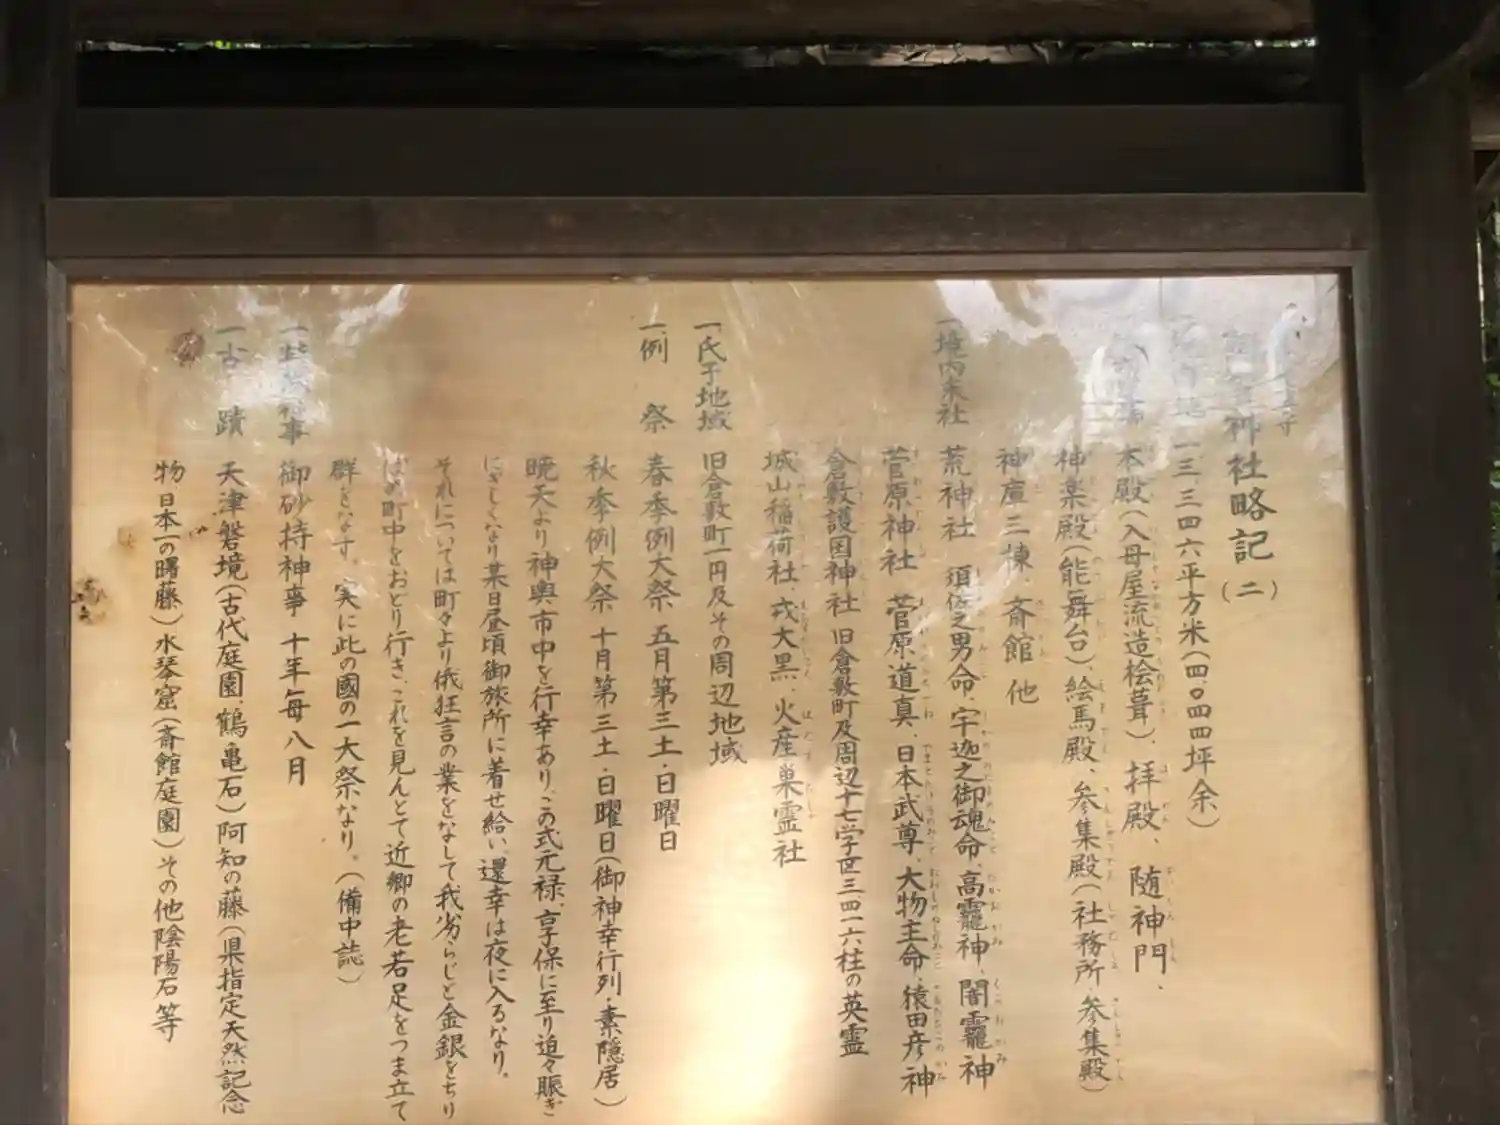 神社略記(二)
一三、三四六平方米(四、〇四四坪余)
本殿(入母屋流造桧葺)、拝殿、随神門、
神楽殿(能舞台)、絵馬殿、参集殿(社務所、参集殿)
神庫三棟、斎館 他
一境内末社 荒神社 須佐之男命、宇迦之御魂命、高龗神、闇龗神
菅原神社 菅原道真、日本武尊、大物主命、猿田彦神
倉敷護国神社 旧倉敷町及周辺十七学世三四一六柱の英霊
城山稲荷社、戎大黒、火産巣霊社
一氏子地域 旧倉敷町一円及その周辺地域
一例 祭 春季例大祭 五月第三土・日曜日
秋季例大祭 十月第三土・日曜日(御神幸行列・素隠居)
暁天より神輿市中を行幸あり、この式元禄、享保に至り追々賑ぎ
にぎしくなり某日昼頃御旅所に着せ給い、還幸は夜に入るなり。
それについては町々より俄狂言の業をなして我劣らじと金銀をちり
ばめ町中をおどり行き、これを見んとて近郷の老若足をつま立て
群をなす。実に此の國の一大祭なり。(備中誌)
神事 御砂持神事 十年毎八月
一古 蹟 天津磐境(古代庭園、鶴亀石)阿知の藤(県指定天然記念
物日本一の曙藤)水琴窟(斎館庭園)その他陰陽石等